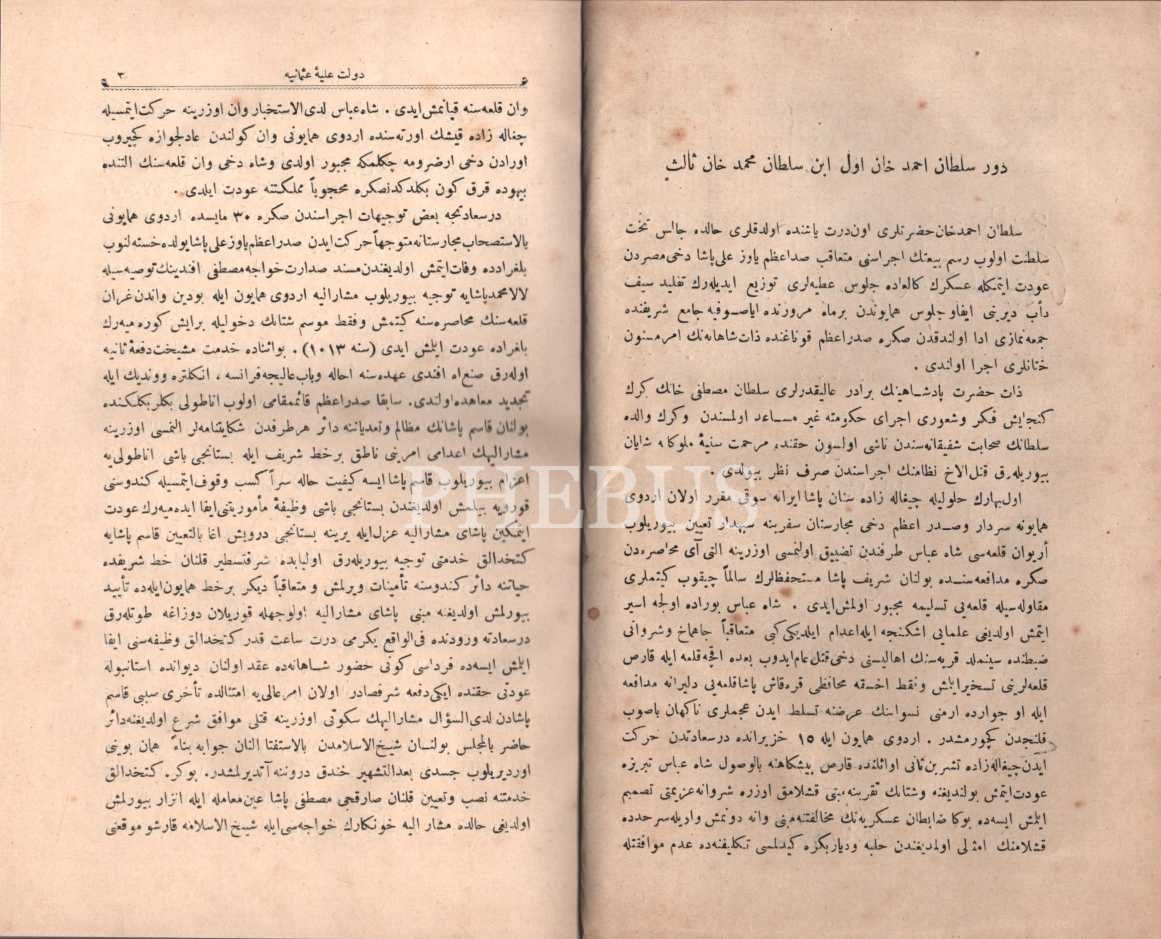 دور سلطان احمد خان اول ابن سلطان محمد خان ثالث
سلطان احمدخان حضرتلری اون‌درت یاشنده اولدقلری حالده جالس تخت
سلطنت اولوب رسم بیعتك اجراسنی متعاقب صداعظم یاوز علی‌پاشا دخی مصردن
عودت ایتمكله عسكرك كالعاده جلوس عطیه‌لری توزیع ایدیله‌رك تقلید سیف
دأب دیرینی ایفا وجلوس همایوندن برماه مرورنده ایاصوفیه جامع شریفنده
جمعه نمازی ادا اولندقدن صكره صدراعظم قوناغنده ذات شاهانه‌نك امر مسنون
ختانلری اجرا اولندی .
ذات حضرت پادشاهینك برادر عالیقدرلری سلطان مصطفی خانك كرك
كنجایش فكر وشعوری اجرای حكومته غیر مساعد اولمسندن وكرك والده
سلطانك صحابت شفیقانه‌سندن ناشی اولسون حقنده مرحمت سنیهٔ ملوكانه شایان
بیوریله‌رق قتل الاخ نظامنك اجراسندن صرف نظر بیولدی .
اول‌بهارك حلولیله چیغاله زاده سنان پاشا ایرانه سوقی مقرر اولان اردوی
همایونه سردار وصدر اعظم دخی مجارستان سفرینه سپهدار تعیین بیوریلوب
أریوان قلعه‌سی شاه عباس طرفندن تضییق اولنمسی اوزرینه التی آی محاصره‌دن
صكره مدافعه‌سنده بولنان شریف پاشا مستحفظلرك سالماً چیقوب كیتملری
مقاوله‌سیله قلعه‌یی تسلیمه مجبور اولمش‌ایدی . شاه عباس بوراده اولجه اسیر
ایتمش اولدیغی علمایی اشكنجه ایله اعدام ایلدیكی كبی متعاقباً جاهماخ وشروانی
ضبطنده سینملد قریه‌سنك اهالیسنی دخی قتل عام ایدوب بعده اقچه قلعه ایله قارص
قلعه‌لرینی تسخیر ایلمش وفقط اخسقه محافظی قره‌قاش پاشا قلعه‌یی دلیرانه مدافعه
ایله او جوارده ارمنی نسوانك عرضنه تسلط ایدن عجملری ناكهان باصوب
قلنجدن كچورمشدر . اردوی همایون ایله ١٥ خزیرانده درسعادتدن حركت
ایدن چیغاله‌زاده تشرین ثانی اوائلنده قارص پیشكاهنه بالوصول شاه عباس تبریزه
عودت ایتمش بولندیغنه وشتانك تقربنه مبنی قشلامق اوزره شروانه عزیمتی تصمیم
ایلمش ایسه‌ده بوكا ضابطان عسكریه‌نك مخالفتنه مبنی وانه دونمش واویله سرحدده
قشلامنك امثالی اولمدیغندن حلبه ودیاربكره كیدلمسی تكلیفنده عدم موافقتله
دولت علیهٔ عثمانیه
٣
وان قلعه‌سنه قپانمش ایدی . شاه عباس لدی الاستخبار وان اوزرینه حركت ایتمسیله
چغاله زاده قیشك اورته‌سنده اردوی همایونی وان كولندن عادلجوازه كچیروب
اورادن دخی ارضرومه چكلمكه مجبور اولدی وشاه دخی وان قلعه‌سنك التنده
بیهوده قرق كون بكلدكدنصكره محجوباً مملكتنه عودت ایلدی .
درسعادتجه بعض توجیهات اجراسندن صكره ٣٠ مایسده اردوی همایونی
بالاستصحاب مجارستانه متوجهاً حركت ایدن صدراعظم یاوز علی پاشا یولده خسته‌لنوب
بلغرادده وفات ایتمش اولدیغندن مسند صدارت خواجه مصطفی افندینك توصیه‌سیله
لالا محمد پاشایه توجیه بیوریلوب مشارالیه اردوی همایون ایله بودین واندن غران
قلعه‌سنك محاصره‌سنه كیتمش وفقط موسم شتانك دخولیله برایش كوره‌میه‌رك
بلغراده عودت ایلمش ایدی (سنه ١٠١٣) . بوائناده خدمت مشیخت دفعهٔ ثانیه
اوله‌رق صنع‌اﷲ افندی عهده‌سنه احاله وباب عالیجه فرانسه ، انكلتره وونديك ایله
تجدید معاهده اولندی . سابقا صدراعظم قائممقامی اولوب اناطولی بكلربكلكنده
بولنان قاسم پاشانك مظالم وتعدیاتنه دائر هرطرفدن شكایتنامه‌لر التمسی اوزرینه
مشارالیهك اعدامی امرینی ناطق برخط شریف ایله بستانجی باشی اناطولی‌یه
اعزام بیوریلوب قاسم پاشا ایسه كیفیت حاله سراً كسب وقوف ایتمسیله كندوسنی
قورویه بیلمش اولدیغندن بستانجی باشی وظیفهٔ مأموریتنی ایفا ایده‌میه‌رك عودت
ایتمكین پاشای مشارالیه عزل ایله یرینه بستانجی درویش اغا بالتعیین قاسم پاشایه
كتخدالق خدمتی توجیه بیوریله‌رق اولبابده شرفتسطیر قلنان خط شریفده
حیاتنه دائر كندوسنه تأمینات ویرلمش و متعاقباً دیكر برخط همایون ایله‌ده تأیید
بیورلمش اولدیغنه مبنی پاشای مشارالیه اولوجهله قوریلان دوزاغه طوتله‌رق
درسعادته ورودنده فی‌الواقع یكرمی درت ساعت قدر كتخدالق وظیفه‌سنی ایفا
ایلمش ایسه‌ده فرداسی كونی حضور شاهانه‌ده عقد اولنان دیوانده استانبوله
عودتی حقنده ایكی دفعه شرفصادر اولان امر عالی‌یه امتثالده تأخری سببی قاسم
پاشادن لدی السؤال مشارالیهك سكوتی اوزرینه قتلی موافق شرع اولدیغنه دائر
حاضر بالمجلس بولنان شیخ‌الاسلامدن بالاستفتا النان جوابه بناءً همان بوینی
اوردیریلوب جسدی بعدالتشهیر خندق دروننه آتدیرلمشدر . بوكره كتخدالق
خدمتنه نصب وتعیین قلنان صارقجی مصطفی پاشا عین معامله ایله انزار بیورلمش
اولدیغی حالده مشار الیه خونكارك خواجه‌سی ایله شیخ الاسلامه قارشو موقعنی
PHEBUS